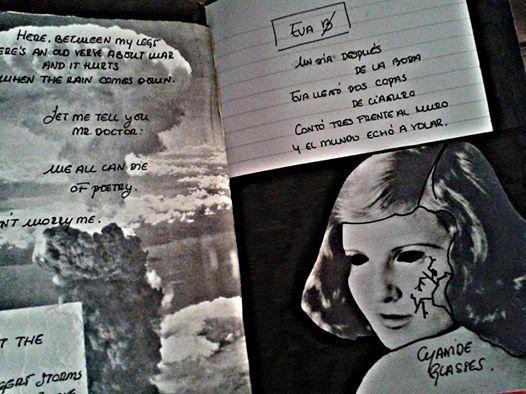 HERE, BETWEEN MY LEGS
THERE'S AN OLD VERSE ABOUT WAR
AND IT HURTS
WHEN THE RAIN COMES DOWN.
LET ME TELL YOU
MR. DOCTOR:
WE ALL CAN DIE
OF POETRY.
WORRY ME.
THE
STORMS
EVA B
UN DÍA DESPUÉS
DE LA BODA
EVA LLENÓ DOS COPAS
DE CIANURO
CONTÓ TRES FRENTE AL MURO
Y EL MUNDO ECHÓ A VOLAR.
CYANIDE
GLASSES.